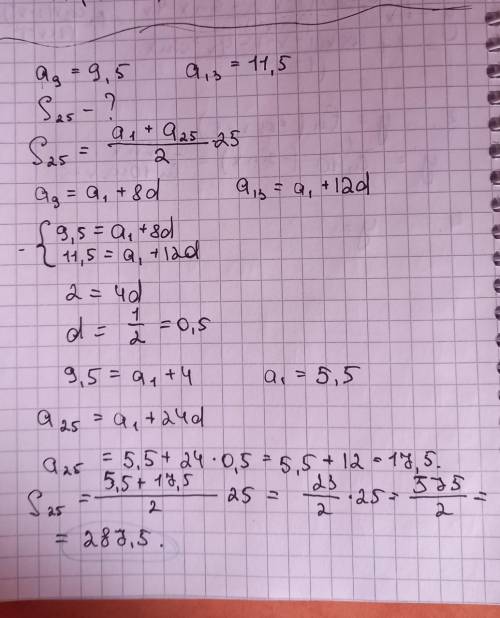 a₉ = 9,5 a₁₃ = 11,5
S₂₅ - ?
S₂₅ = (a₁ + a₂₅)/2 · 25
a₉ = a₁ + 8d a₁₃ = a₁ + 12d
- { 9,5 = a₁ + 8d
11,5 = a₁ + 12d
2 = 4d
d = 1/2 = 0,5
9,5 = a₁ + 4 a₁ = 5,5
a₂₅ = a₁ + 24d
a₂₅ = 5,5 + 24 · 0,5 = 5,5 + 12 = 17,5.
S₂₅ = (5,5 + 17,5)/2 · 25 = 23/2 · 25 = 575/2 =
= 287,5.